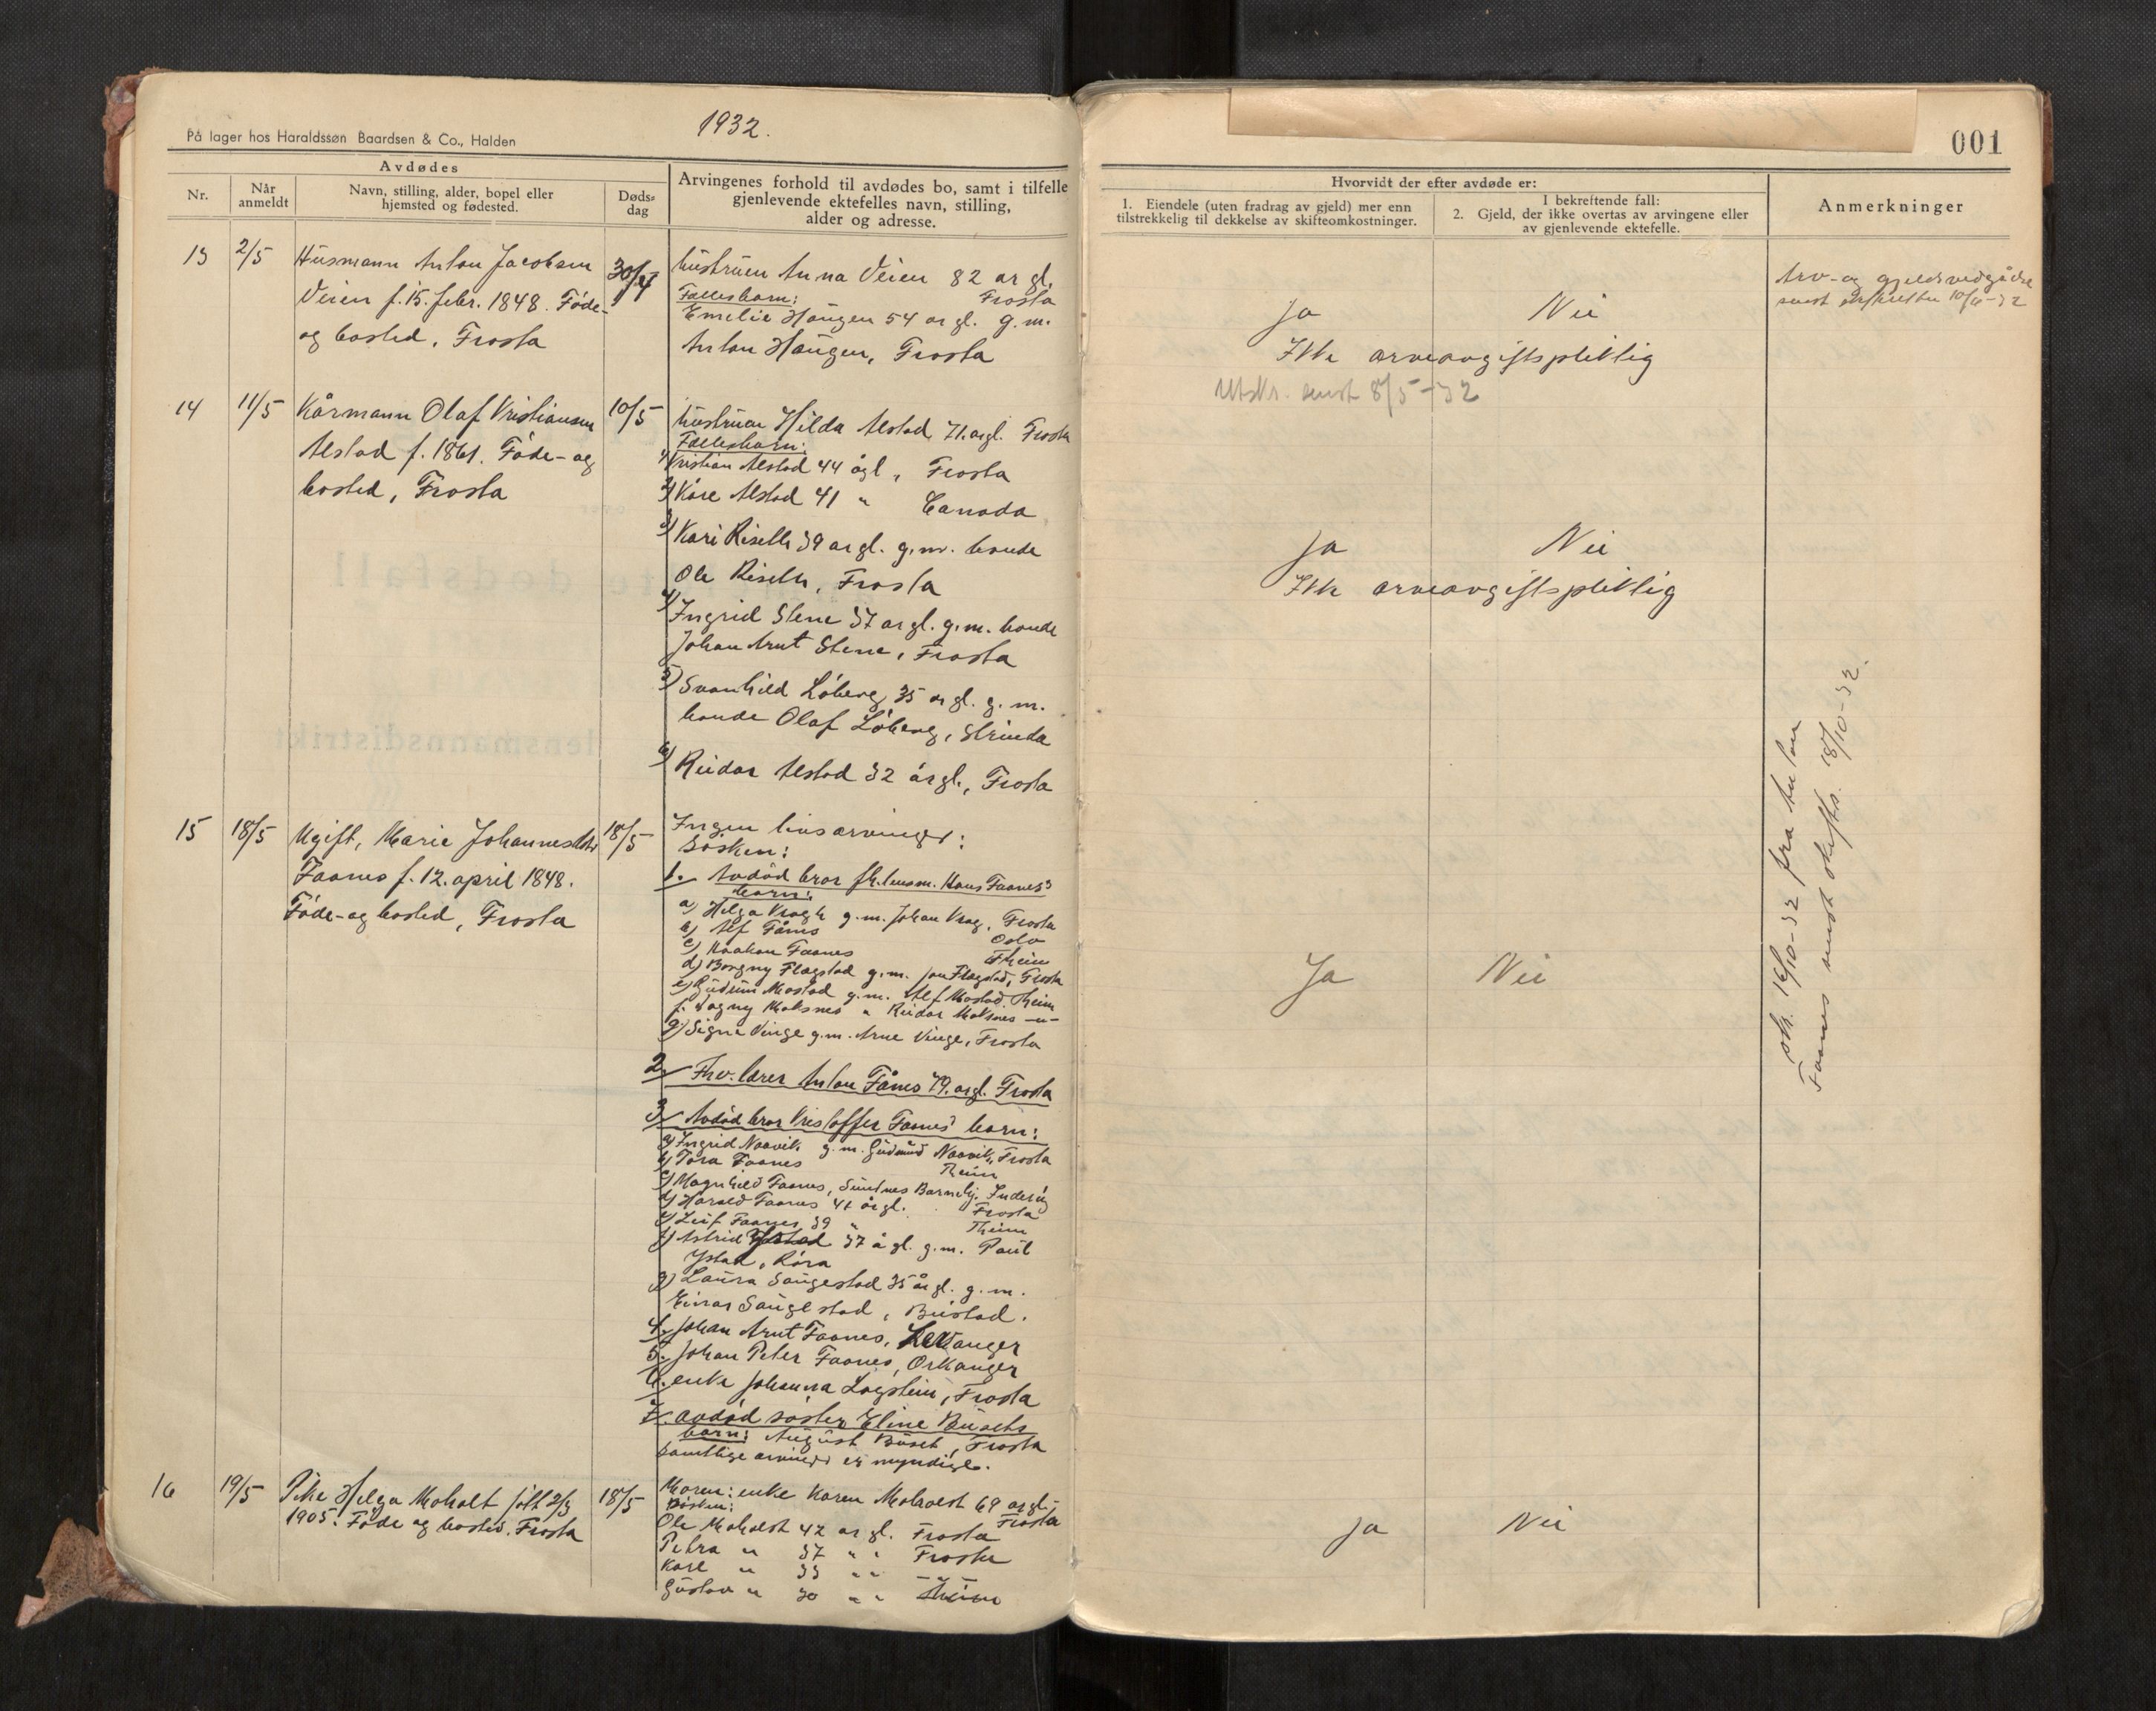 På lager hos Haraldssøn Baardsen & Co., Halden
1932.
Avdødes
Nr.
Når anmeldt
Navn, stilling, alder, bopel eller hjemsted og fødested.
Dødsdag
Arvingenes forhold til avdødes bo, samt i tilfelle
gjenlevende ektefelles navn, stilling,
alder og adresse.
13
2/5
Husmann Anton Jacobsen
Veien f. 15. febr. 1848. Føde-
og bosted, Frosta
30/4
hustruen Anna Veien 82 år gl.
Frosta
Fellesbarn:
Emelie Haugen 54 år gl. g.m.
Anton Haugen, Frosta
14
11/5
Kårmann Olaf Kristiansen
Alstad f. 1861. Føde- og
bosted, Frosta
10/5
hustruen Hilda Alstad, 71 årgl. Frosta
Fellesbarn:
1) Kristian Alstad 44 ågl, Frosta
2) Kåre Alstad 41 " Canada
3) Kari Riseth 39 år gl. g.m. bonde
Ole Riseth, Frosta
4) Ingrid Stene 37 år gl. g.m. bonde
Johan Arnt Stene, Frosta
5) Svanhild Løberg 35 år gl. g.m.
bonde Olaf Løberg, Strinda
6) Reidar Alstad 32 år gl., Frosta
15
18/5
Ugift, Marie Johannesdtr
Faanes f. 12. april 1848.
Føde- og bosted, Frosta
18/5
Ingen livsarvinger:
Søsken:
1. Avdød bror fh. lensm. Hans Faanes'
barn:
a) Helga Kragh g.m. Johan Krag, Frosta
b) Alf Fånes Oslo
c) Haakon Faanes Theim
d) Borgny Flagstad g.m. Jon Flagstad, Frosta
e) Gudrun Mostad g.m. Alf Mostad, Theim
f. Dagny Moksnes " Reidar Moksnes -"-
g) Signe Vinge g.m. Arne Vinge, Frosta
2. Fhv. lærer Anton Fånes 79. årgl. Frosta
3. Avdød bror Kristoffer Faanes' barn:
a) Ingrid Naavik g.m. Gudmund Naavik, Frosta
b) Tora Faanes Theim
c) Magnhild Faanes, Sundnes Barnehj. Inderøy
d) Harald Faanes 41 år gl. Frosta
e) Leif Faanes 39 " Theim
f) Astrid Ystad 37 å gl. g.m. Paul
Ystad, Røra
g) Laura Saugestad 35 år gl. g.m.
Einar Saugestad, Beistad.
4. Johan Arnt Faanes, Lexanger
5. Johan Peter Faanes, Orkanger
6. enke Johanna Logstein, Frosta
7. avdød søster Eline Busets
barn: August Buset, Frosta
samtlige arvinger er myndige.
16
19/5
Pike Helga Moholt født 2/3
1905. Føde og bosted. Frosta
18/5
Moren: enke Karen Moholdt 69 år gl.
Frosta
Søsken:
Ole Moholdt 42 år gl. Frosta
Petra " 37 " " Frosta
Karl " 33 " " — " —
Gustav " 30 " " Theim
001
Hvorvidt der efter avdøde er:
1. Eiendele (uten fradrag av gjeld) mer enn
tilstrekkelig til dekkelse av skifteomkostninger.
I bekreftende fall:
2. Gjeld, der ikke overtas av arvingene eller
av gjenlevende ektefelle.
Anmerkninger
Ja Nei
Ikke arveavgiftspliktig
Utskr. sendt 8/5-32
Arv- og gjeldsvedgåelse
sendt skifteretten 10/6-32
Ja Nei
Ikke arveavgiftspliktig
Ja Nei
sk. 16/10-32 fra Anton
Faanes sendt skifts. 18/10-32.
Ja Nei